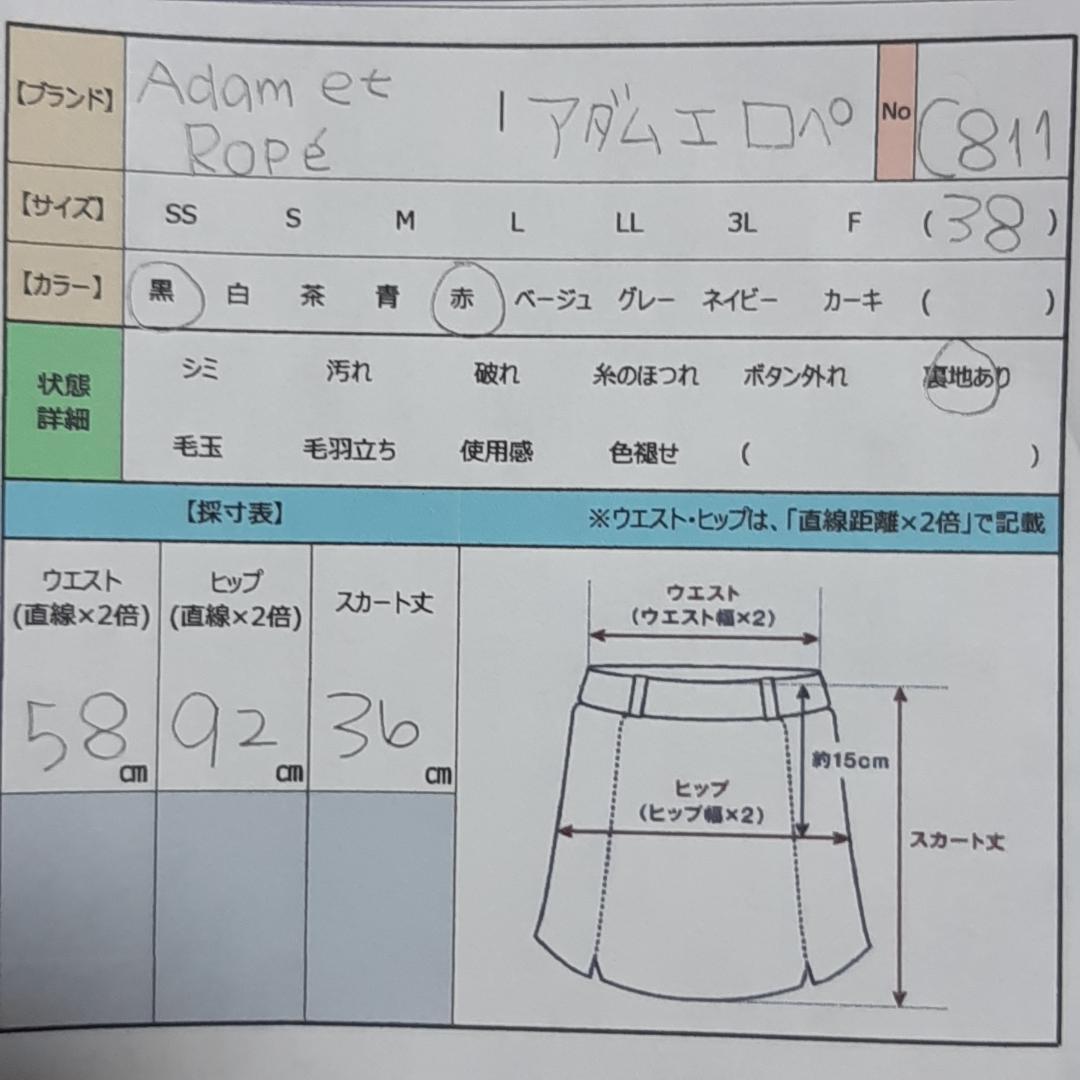 【ブランド】 Adam et Ropé | アダムエロペ No C811
【サイズ】 SS S M L LL 3L F (38)
【カラー】 黒 白 茶 青 赤 ベージュ グレー ネイビー カーキ ( )
状態詳細
シミ 汚れ 破れ 糸のほつれ ボタン外れ 裏地あり
毛玉 毛羽立ち 使用感 色褪せ ( )
【採寸表】 ※ウエスト・ヒップは、「直線距離×2倍」で記載
ウエスト (直線×2倍) ヒップ (直線×2倍) スカート丈
58cm 92cm 36cm
ウエスト
(ウエスト幅×2)
約15cm
ヒップ
(ヒップ幅×2)
スカート丈